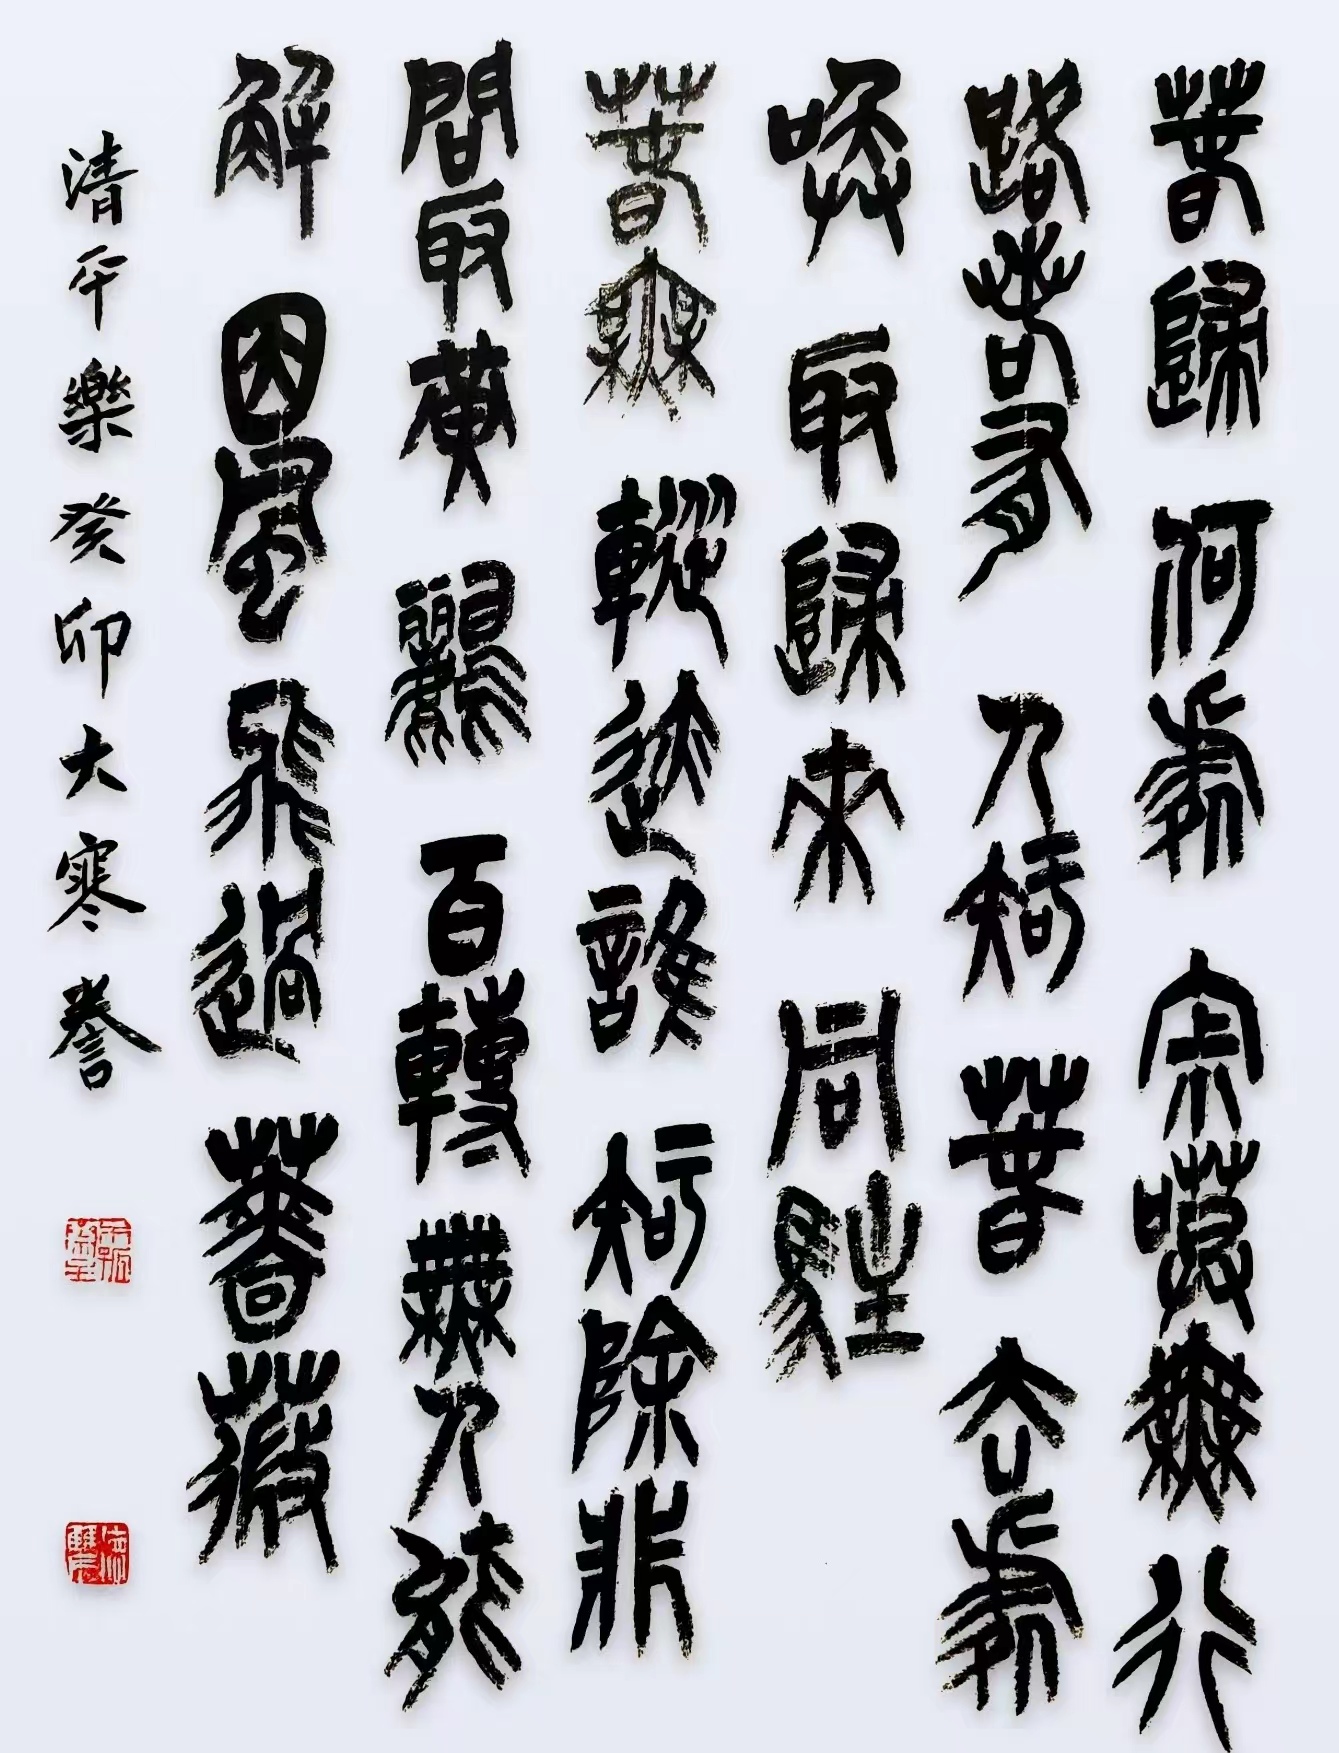 春歸何處寂嗼無行
路若有人知春去處
喚取歸來同駐
春無蹤迹誰知除非
問取黃鸝百轉無人能
解因風飛過薔薇
清平樂癸卯大寒誊